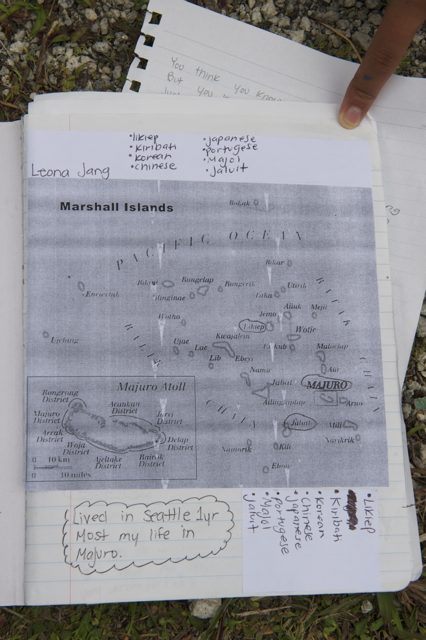 You think you know
But
•likiep
•kiribati
•korean
•chinese
•japanese
•portugese
•Majol
•jaluit
Leona Jang
Marshall Islands
PACIFIC OCEAN
Bokak
Bikar
Bikini
Rongelap
Rongerik
Utirik
Enewetak
Ailinginae
Taka
Ailuk
Mejit
Jemo
Wotho
Likiep
Wotje
Kwajalein
Ujelang
Ujae
Lae
Lib
Ebeye
Maloelap
Namu
Aur
Jabat
MAJURO
Arno
Ailinglaplap
Jaluit
Mili
Narikrik
Namorik
Kili
Ebon
RALIK
CHAIN
RATAK
CHAIN
Majuro Atoll
Rongrong
District
Aeankan
District
Majuro
District
Jarej
District
Arrak
District
Woja
District
Ajeltake
District
Bairiki
District
Delap
District
0 10 km
0 10 miles
Lived in Seattle 1yr
Most my life in
Majuro.
•Likiep
•Kiribati
•Korean
•Chinese
•Japanese
•Portugese
•Majol
•Jaluit